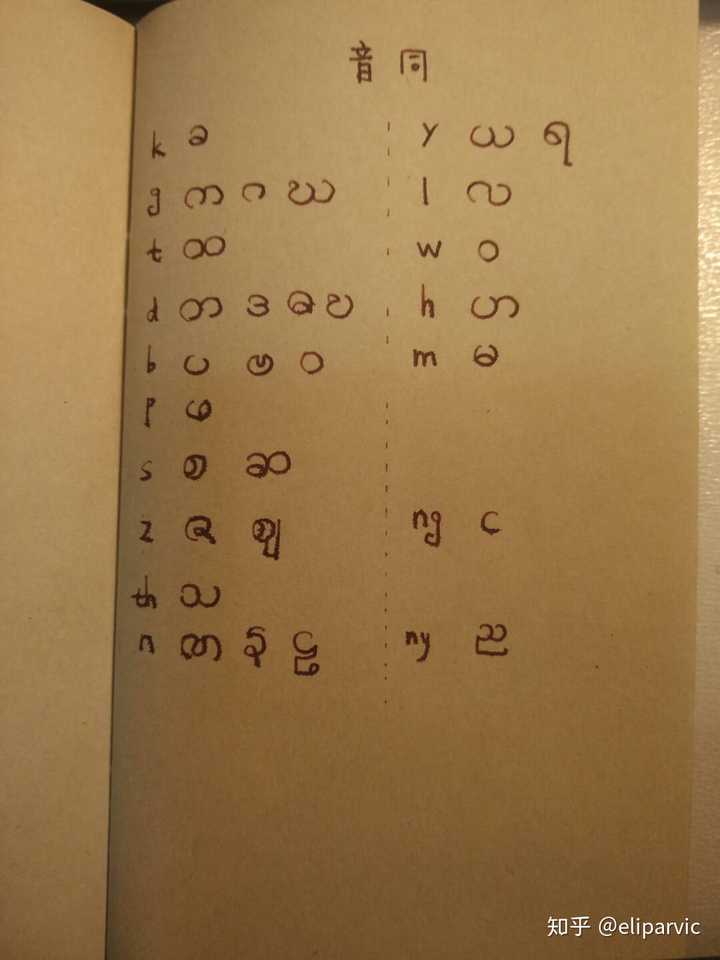 音同
k ခ y ယ ရ
g က ဂ ဃ l လ
t ထ w ဝ
d တ ဒ ဓ ဎ h ဟ
b ပ ဗ ဝ m မ
p ဖ
s စ ဆ
z ဇ ဈ ng င
th သ
n ဏ န ny ည
知乎 @eliparvic